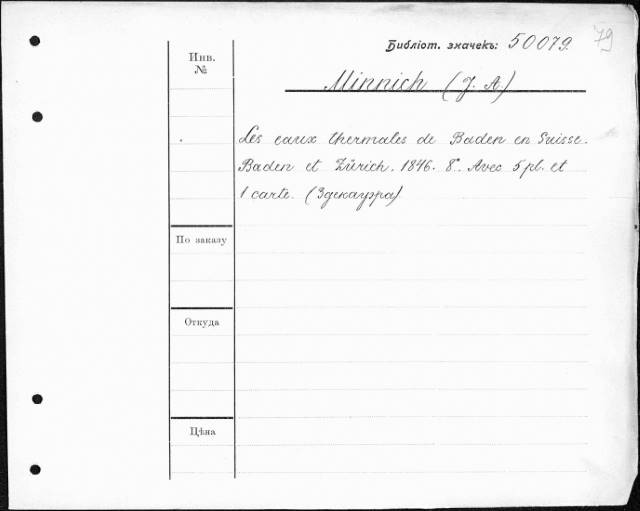 Библіот. значекъ: 50079.
79
Инв. №
Minnich (J. A.)
Les eaux thermales de Baden en Suisse.
Baden et Zürich. 1846. 8°. Avec 5 pl. et
1 carte. (Здекауэра)
По заказу
Откуда
Цѣна